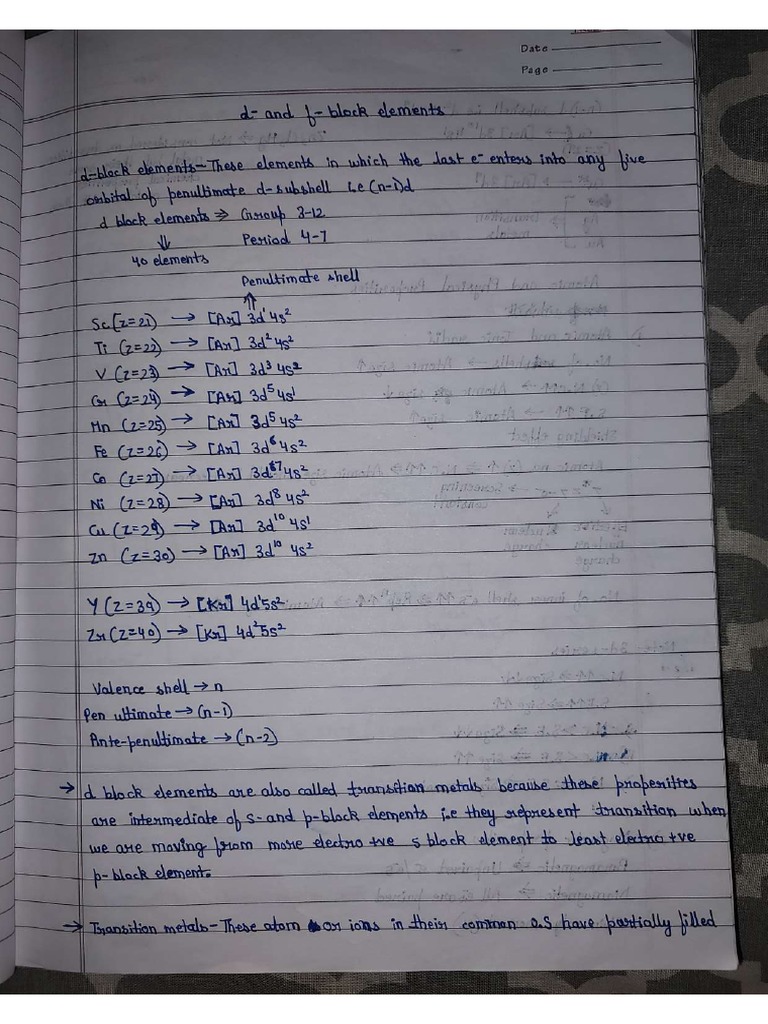 Date
Page
d- and f-block elements
d-block elements - These elements in which the last e⁻ enters into any five
orbital of penultimate d-subshell i.e (n-1)d
d block elements ⇒ Group 3-12
⇓ Period 4-7
40 elements
Penultimate shell
⇑
Sc [z=21) → [Ar] 3d¹4s²
Ti (z=22) → [Ar] 3d² 4s²
V (z=23) → [Ar] 3d³ 4s²
Cr (z=24) → [Ar] 3d⁵ 4s¹
Mn (z=25) → [Ar] 3d⁵ 4s²
Fe (z=26) → [Ar] 3d⁶ 4s²
Co (z=27) → [Ar] 3d⁷ 4s²
Ni (z=28) → [Ar] 3d⁸ 4s²
Cu (z=29) → [Ar] 3d¹⁰ 4s¹
Zn (z=30) → [Ar] 3d¹⁰ 4s²
Y (z=39) → [Kr] 4d¹5s²
Zr (z=40) → [Kr] 4d²5s²
Valence shell → n
Pen ultimate → (n-1)
Ante-penultimate → (n-2)
→ d block elements are also called transition metals because these properities
are intermediate of s- and p-block elements i.e they represent transition when
we are moving from more electro +ve s block element to least electro +ve
p-block element.
→ Transition metals - These atom or ions in their common O.S have partially filled